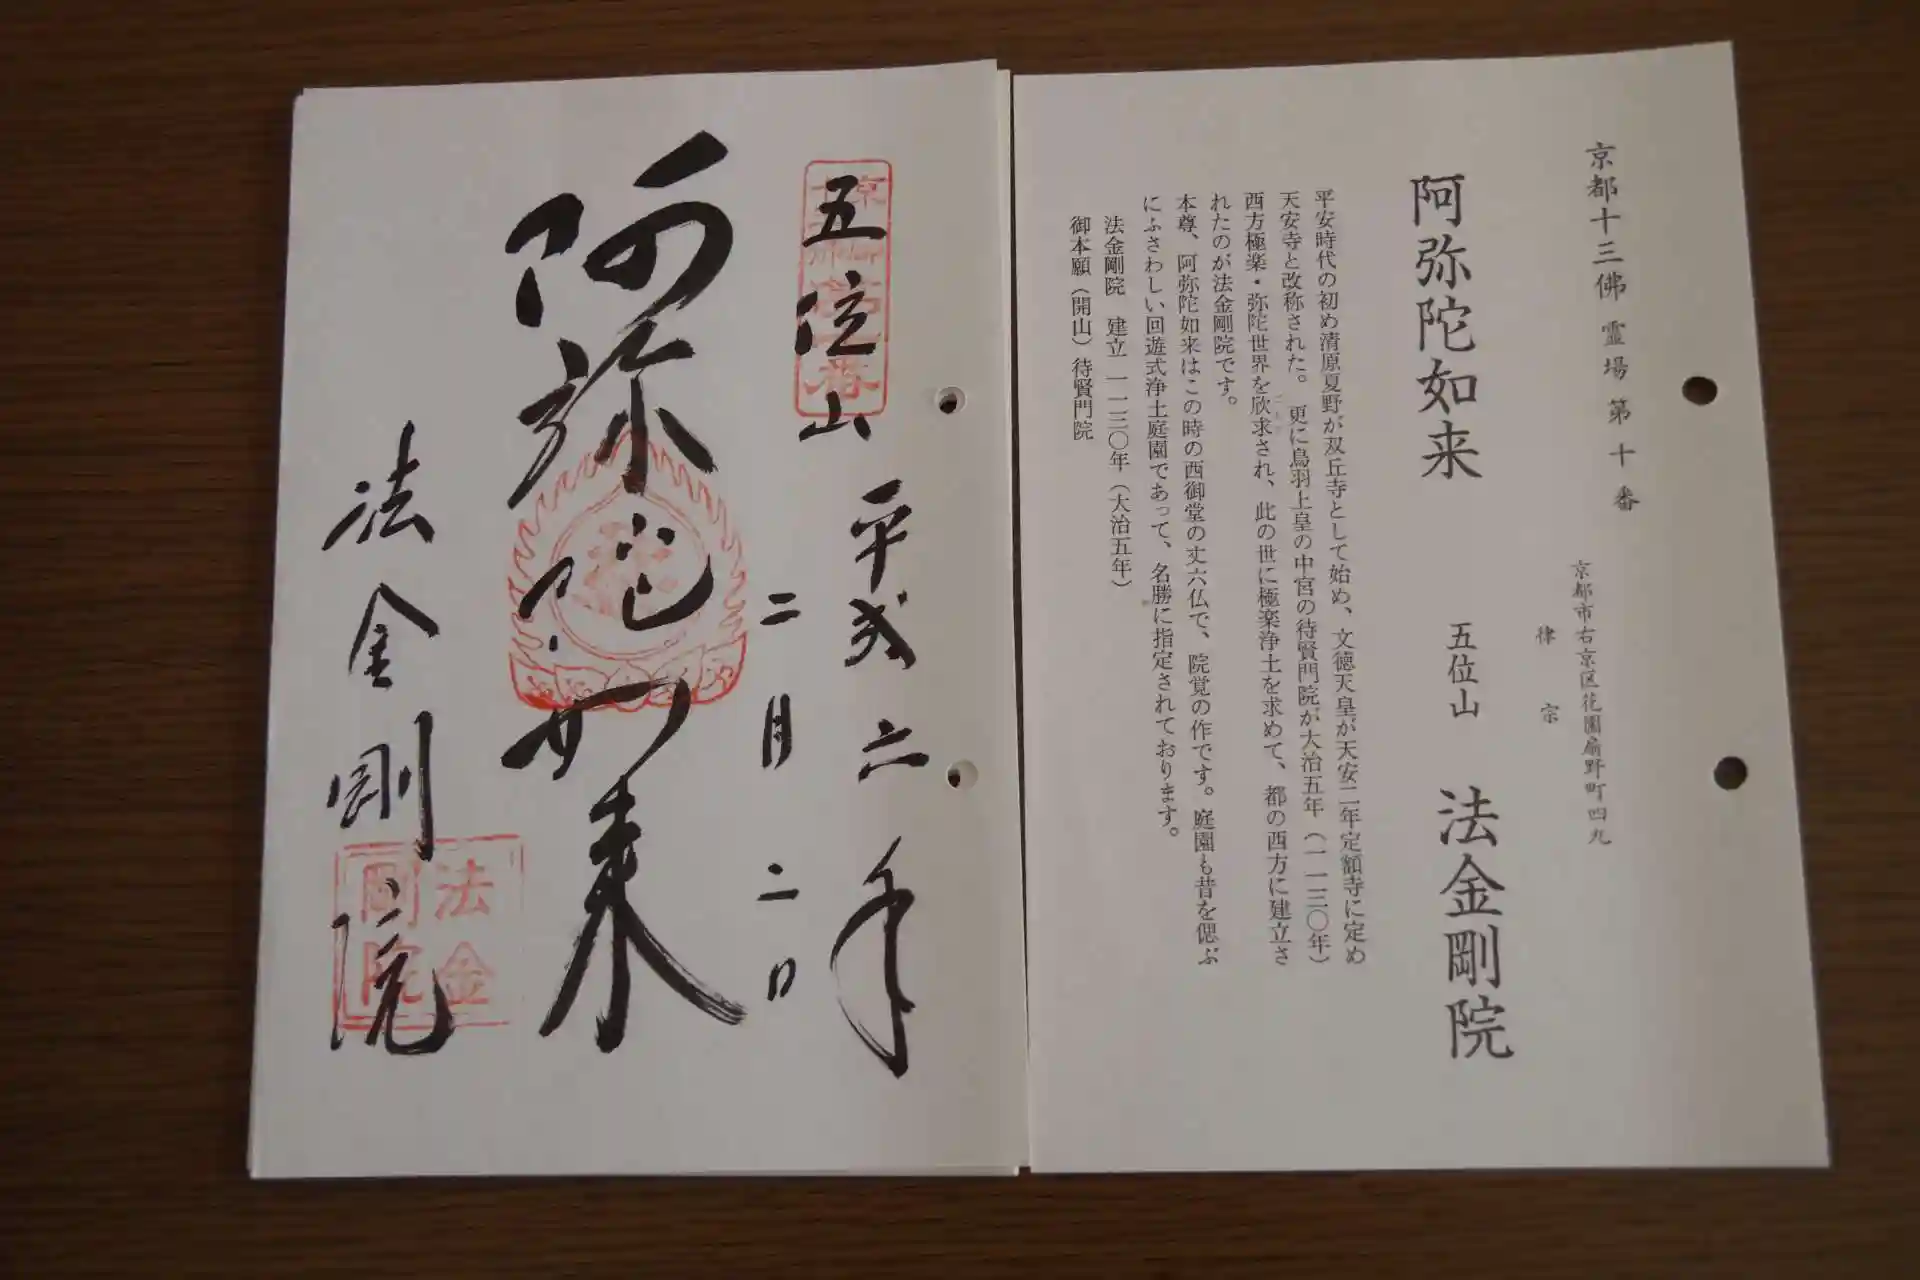 京都十三佛霊場第十番
京都市右京区花園扇野町四九
律宗
阿弥陀如来 五位山 法金剛院
平安時代の初め清原夏野が双丘寺として始め、文徳天皇が天安二年定額寺に定め
天安寺と改称された。更に鳥羽上皇の中宮の待賢門院が大治五年（一一三〇年）
西方極楽・弥陀世界を欣求され、此の世に極楽浄土を求めて、都の西方に建立さ
れたのが法金剛院です。
本尊、阿弥陀如来はこの時の西御堂の丈六仏で、院覚の作です。庭園も昔を偲ぶ
にふさわしい回遊式浄土庭園であって、名勝に指定されております。
法金剛院 建立 一一三〇年（大治五年）
御本願（開山）待賢門院
五位山
平成六年
二月二日
阿弥陀如来
法金剛院
法金剛院